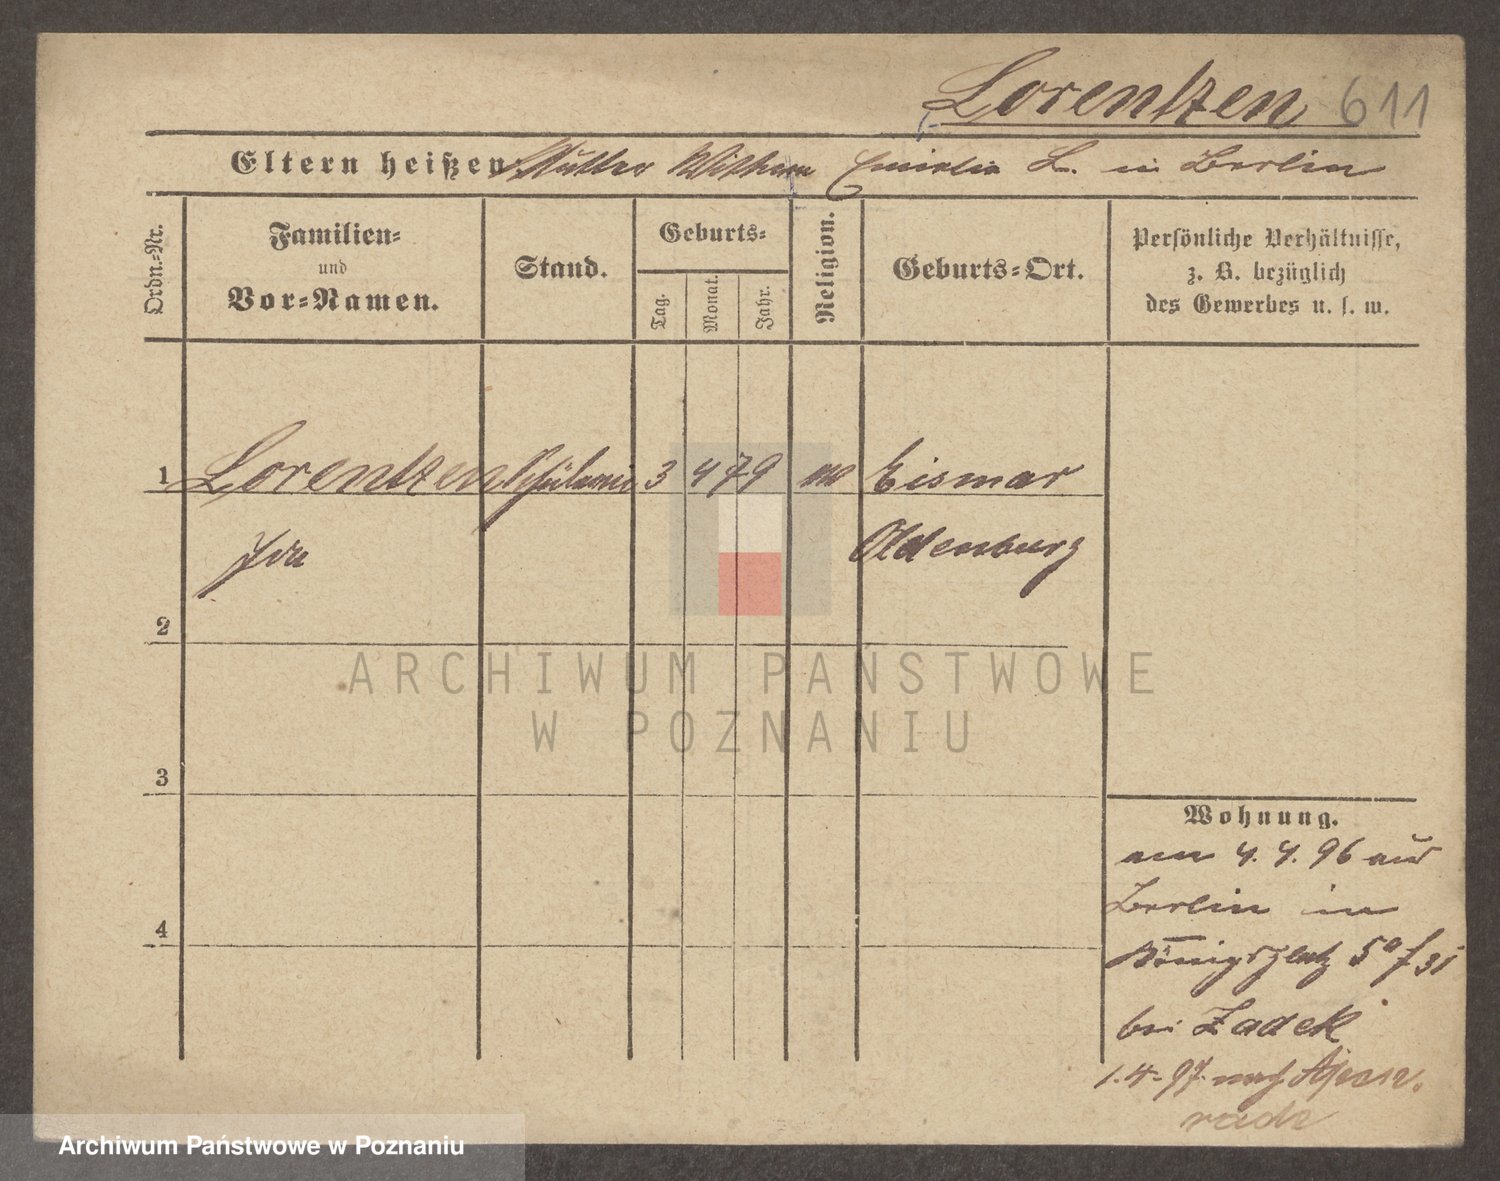 Lorentzen 611
Eltern heißen Mutter Wittwe Emilie L. in Berlin
Ordn.-Nr.
Familien-
und
Vor-Namen.
Stand.
Geburts-
Tag.
Monat.
Jahr.
Religion.
Geburts-Ort.
Persönliche Verhältnisse,
z. B. bezüglich
des Gewerbes u. s. w.
1 Lorentzen Schülerin 3 4 79 Eismar
Ida Oldenburg
2
3
4
Wohnung.
am 4. 4. 96 aus
Berlin in
Königsplatz 5a
bei Zadek
1.4.97 nach Apen-
rade
ARCHIWUM PAŃSTWOWE
W POZNANIU
Archiwum Państwowe w Poznaniu